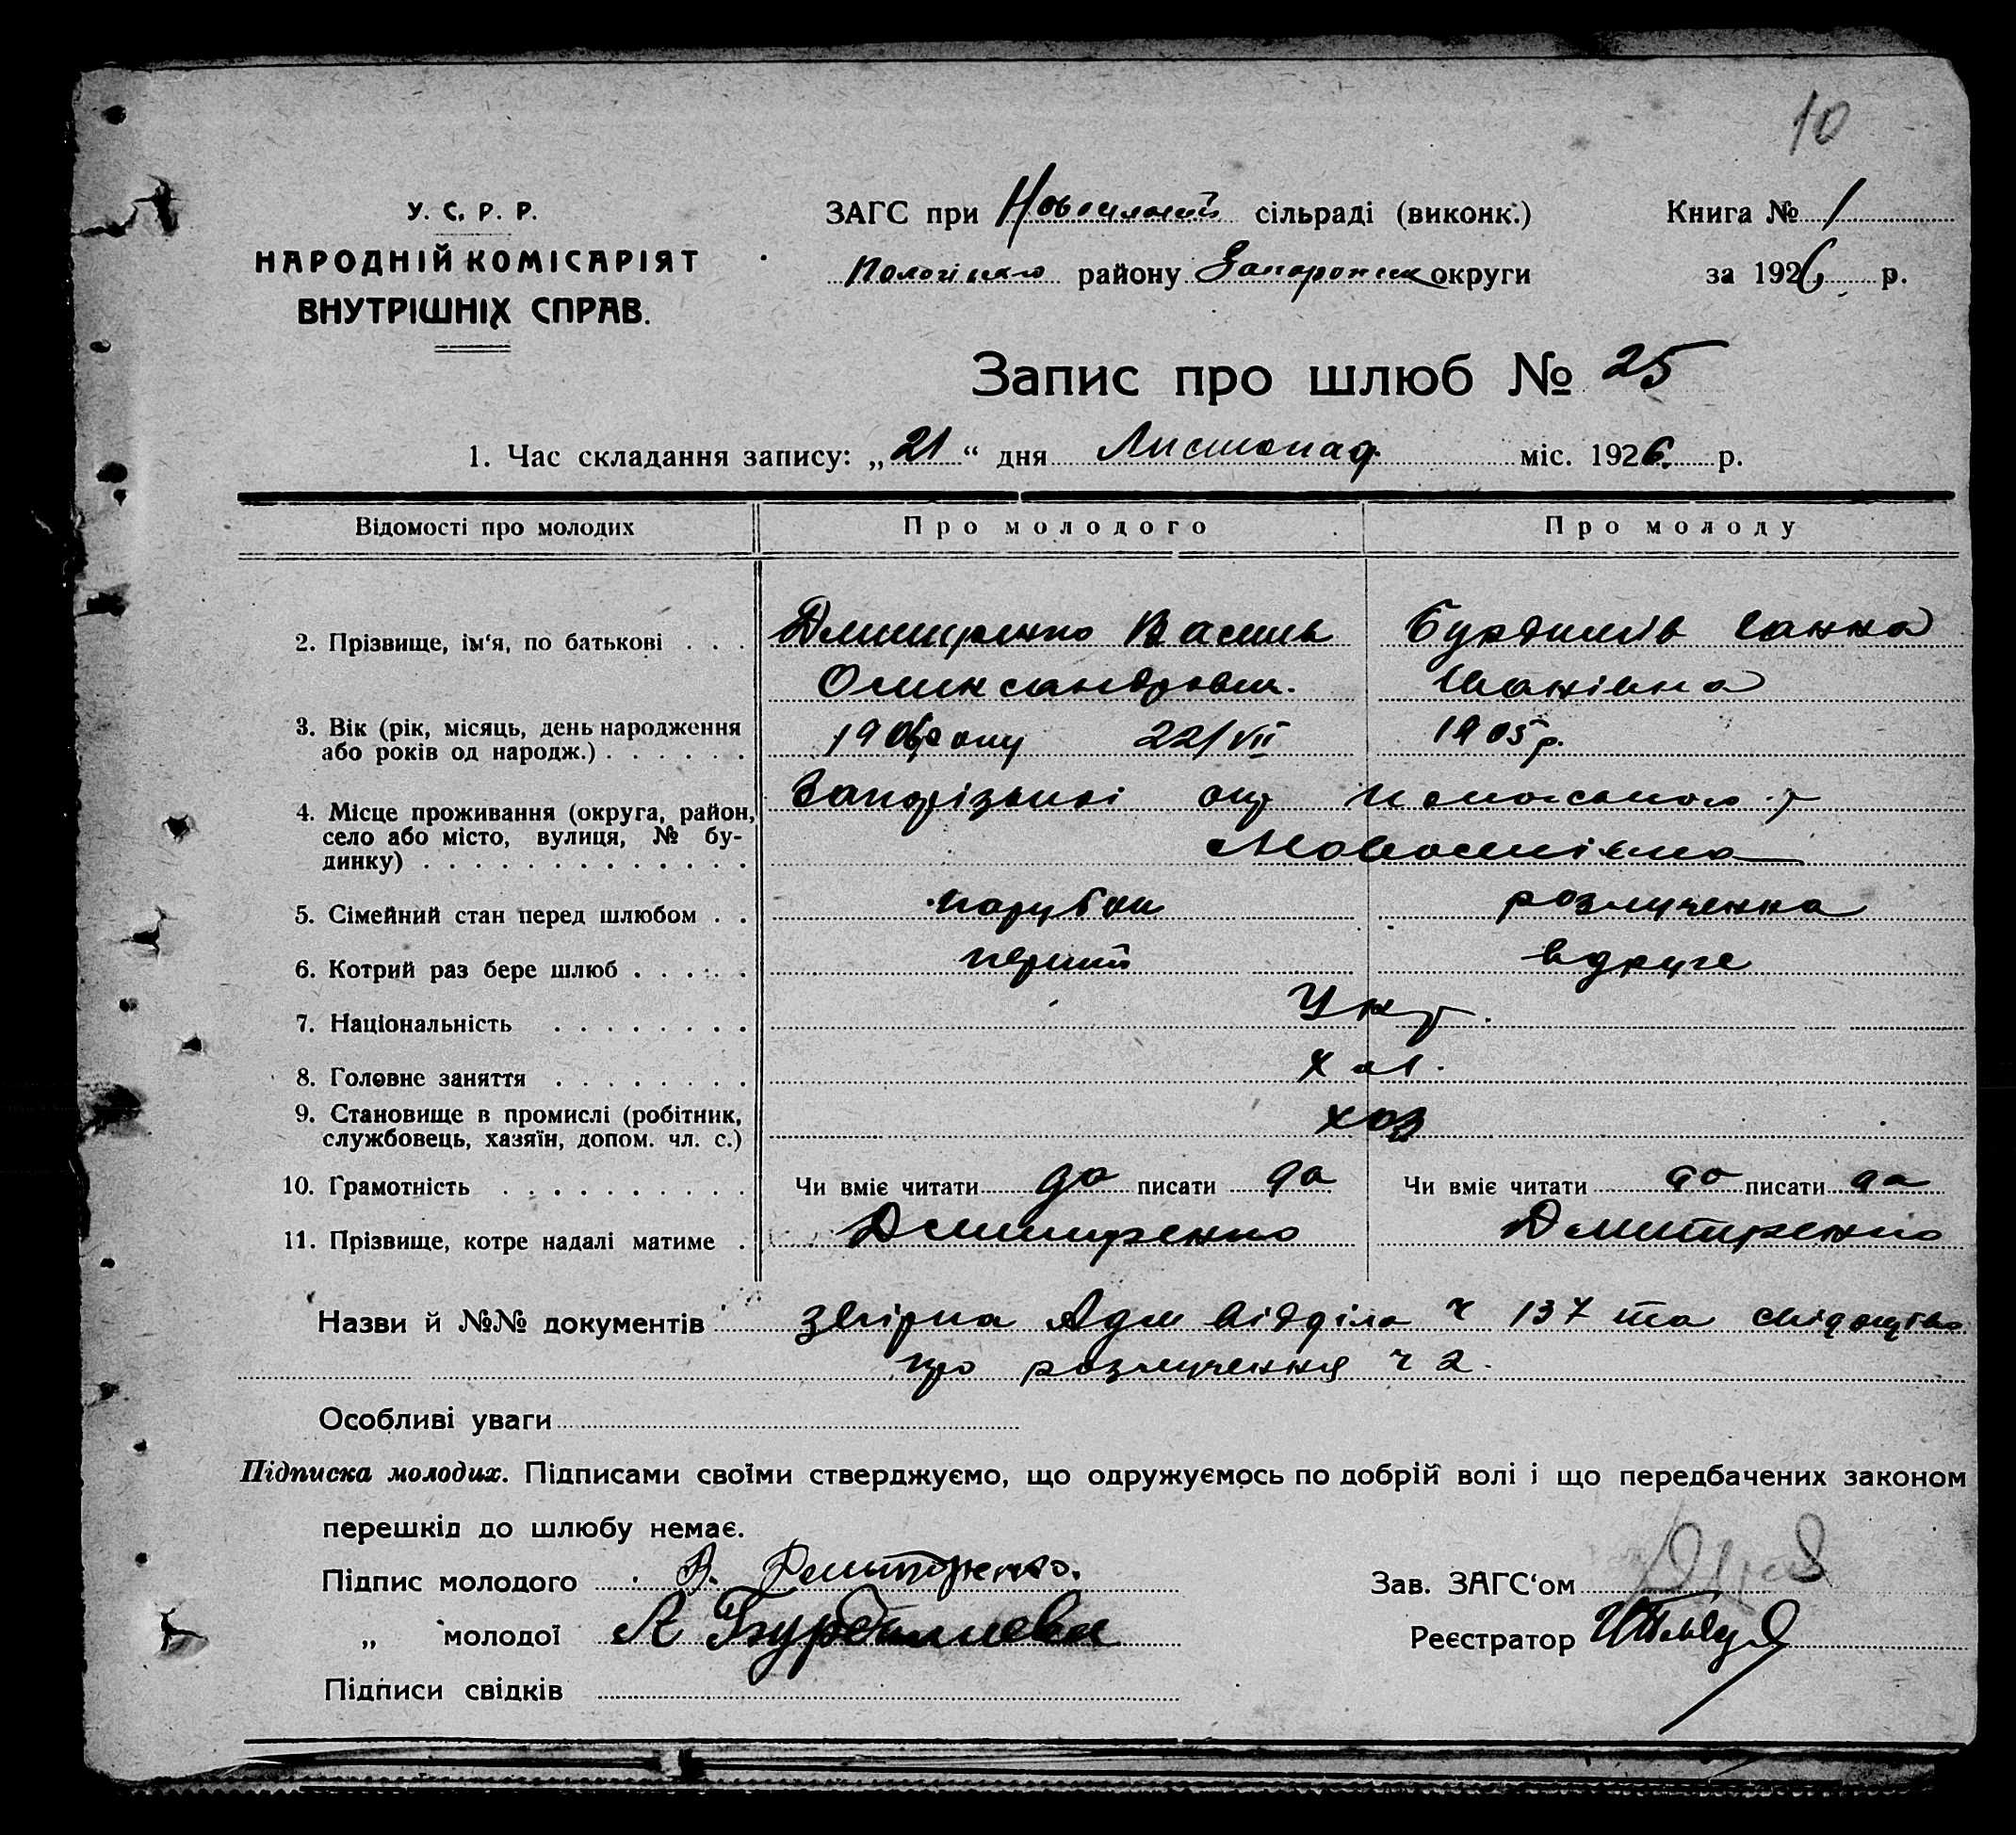 10
У. С. Р. Р.
НАРОДНІЙ КОМІСАРІЯТ
ВНУТРІШНІХ СПРАВ.
ЗАГС при сільраді (виконк.)
Книга № 1
району округи
за 1926 р.
Запис про шлюб № 25
1. Час складання запису: „21“ дня Листопад. міс. 1926. р.
Відомості про молодих Про молодого Про молоду
2. Прізвище, ім‘я, по батькові . . . Дмитренко Василь
Ганна
Іванівна
3. Вік (рік, місяць, день народження
або років од народж.) . . . . . . 22/VII 1905 р.
4. Місце проживання (округа, район,
село або місто, вулиця, № бу-
динку) . . . . . . . . . . . . .
5. Сімейний стан перед шлюбом . . парубок розлученна
6. Котрий раз бере шлюб . . . . . перший вдруге
7. Національність . . . . . . . . Укр.
8. Головне заняття . . . . . . . .
9. Становище в промислі (робітник,
службовець, хазяїн, допом. чл. с.) хоз
10. Грамотність . . . . . . . . . . Чи вміє читати да писати да Чи вміє читати да писати да
11. Прізвище, котре надалі матиме . Дмитренко Дмитренко
Назви й №№ документів Адм відділа ч 137 та
про розлучення ч 2.
Особливі уваги
Підписка молодих. Підписами своїми стверджуємо, що одружуємось по добрій волі і що передбачених законом
перешкід до шлюбу немає.
Підпис молодого В. Дмитренко.
Зав. ЗАГС‘ом
„ молодої
Реєстратор
Підписи свідків